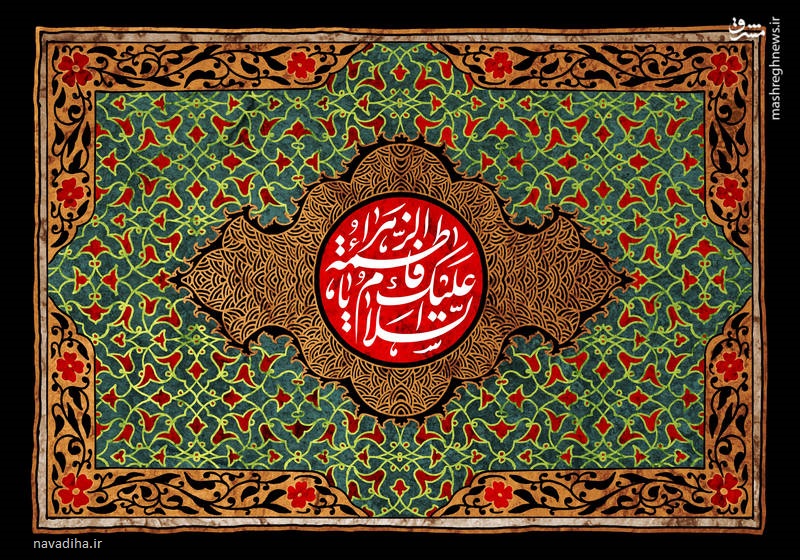 مشرق
mashreghnews.ir
السلام علیک یا فاطمة الزهراء
navadiha.ir